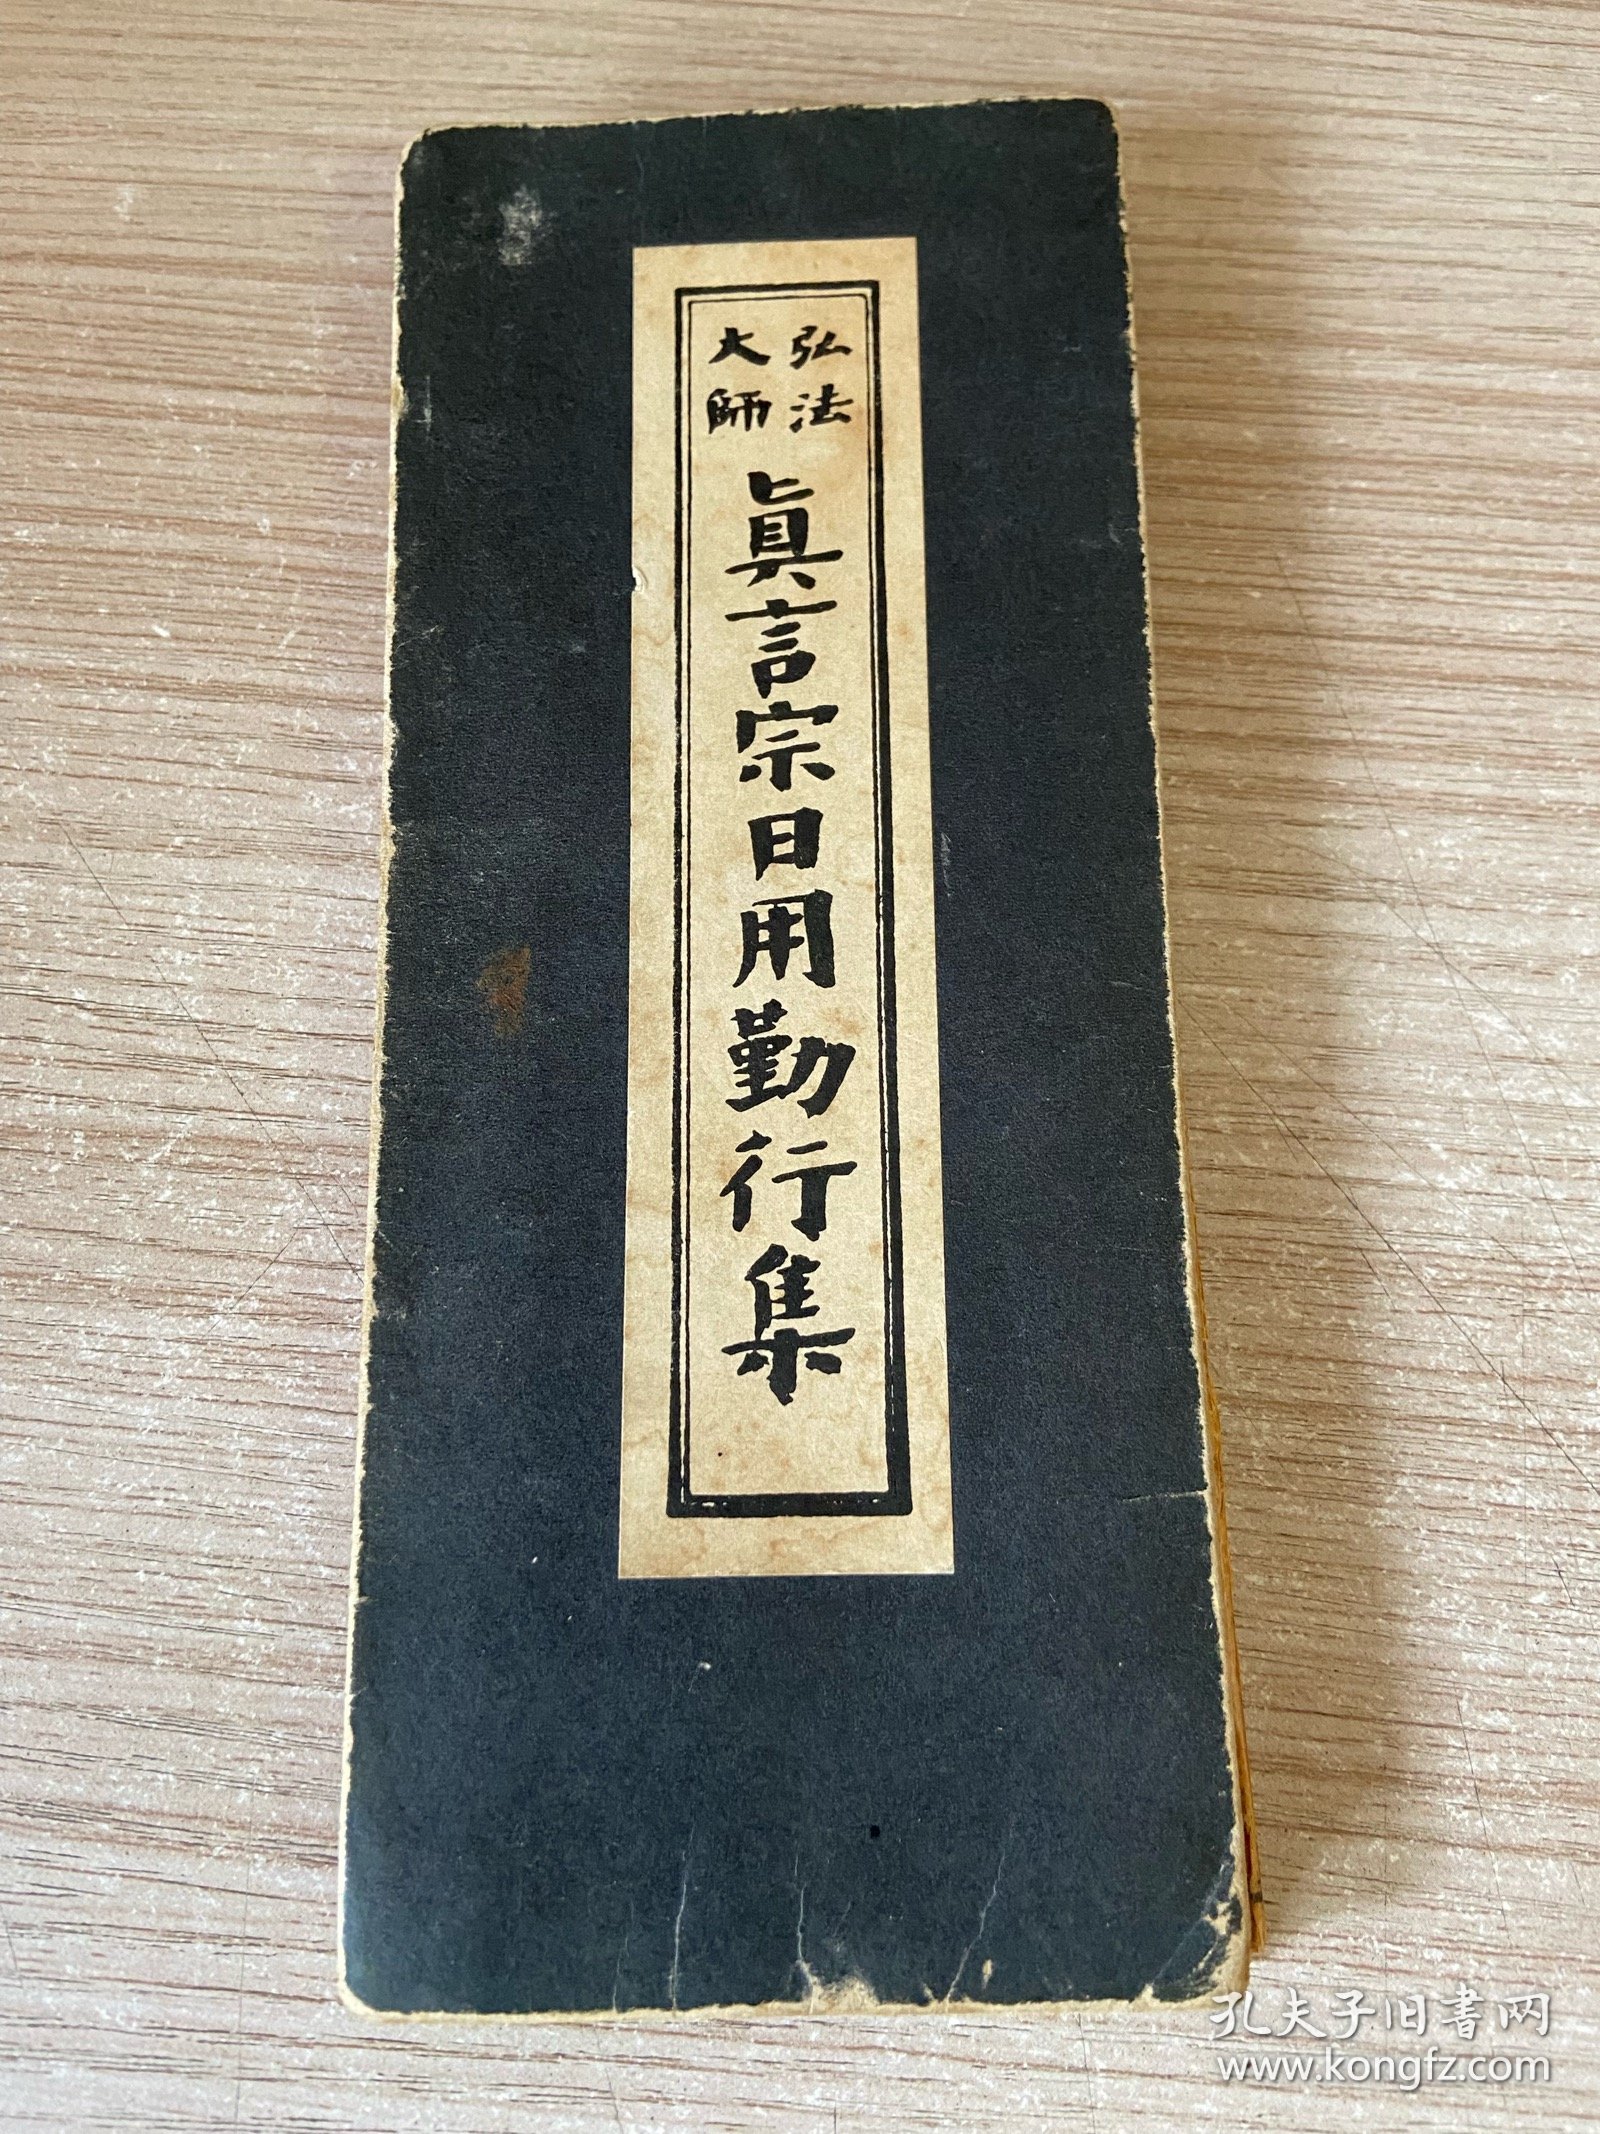 弘法
大師
眞言宗日用勤行集
孔夫子旧书网
www.kongfz.com